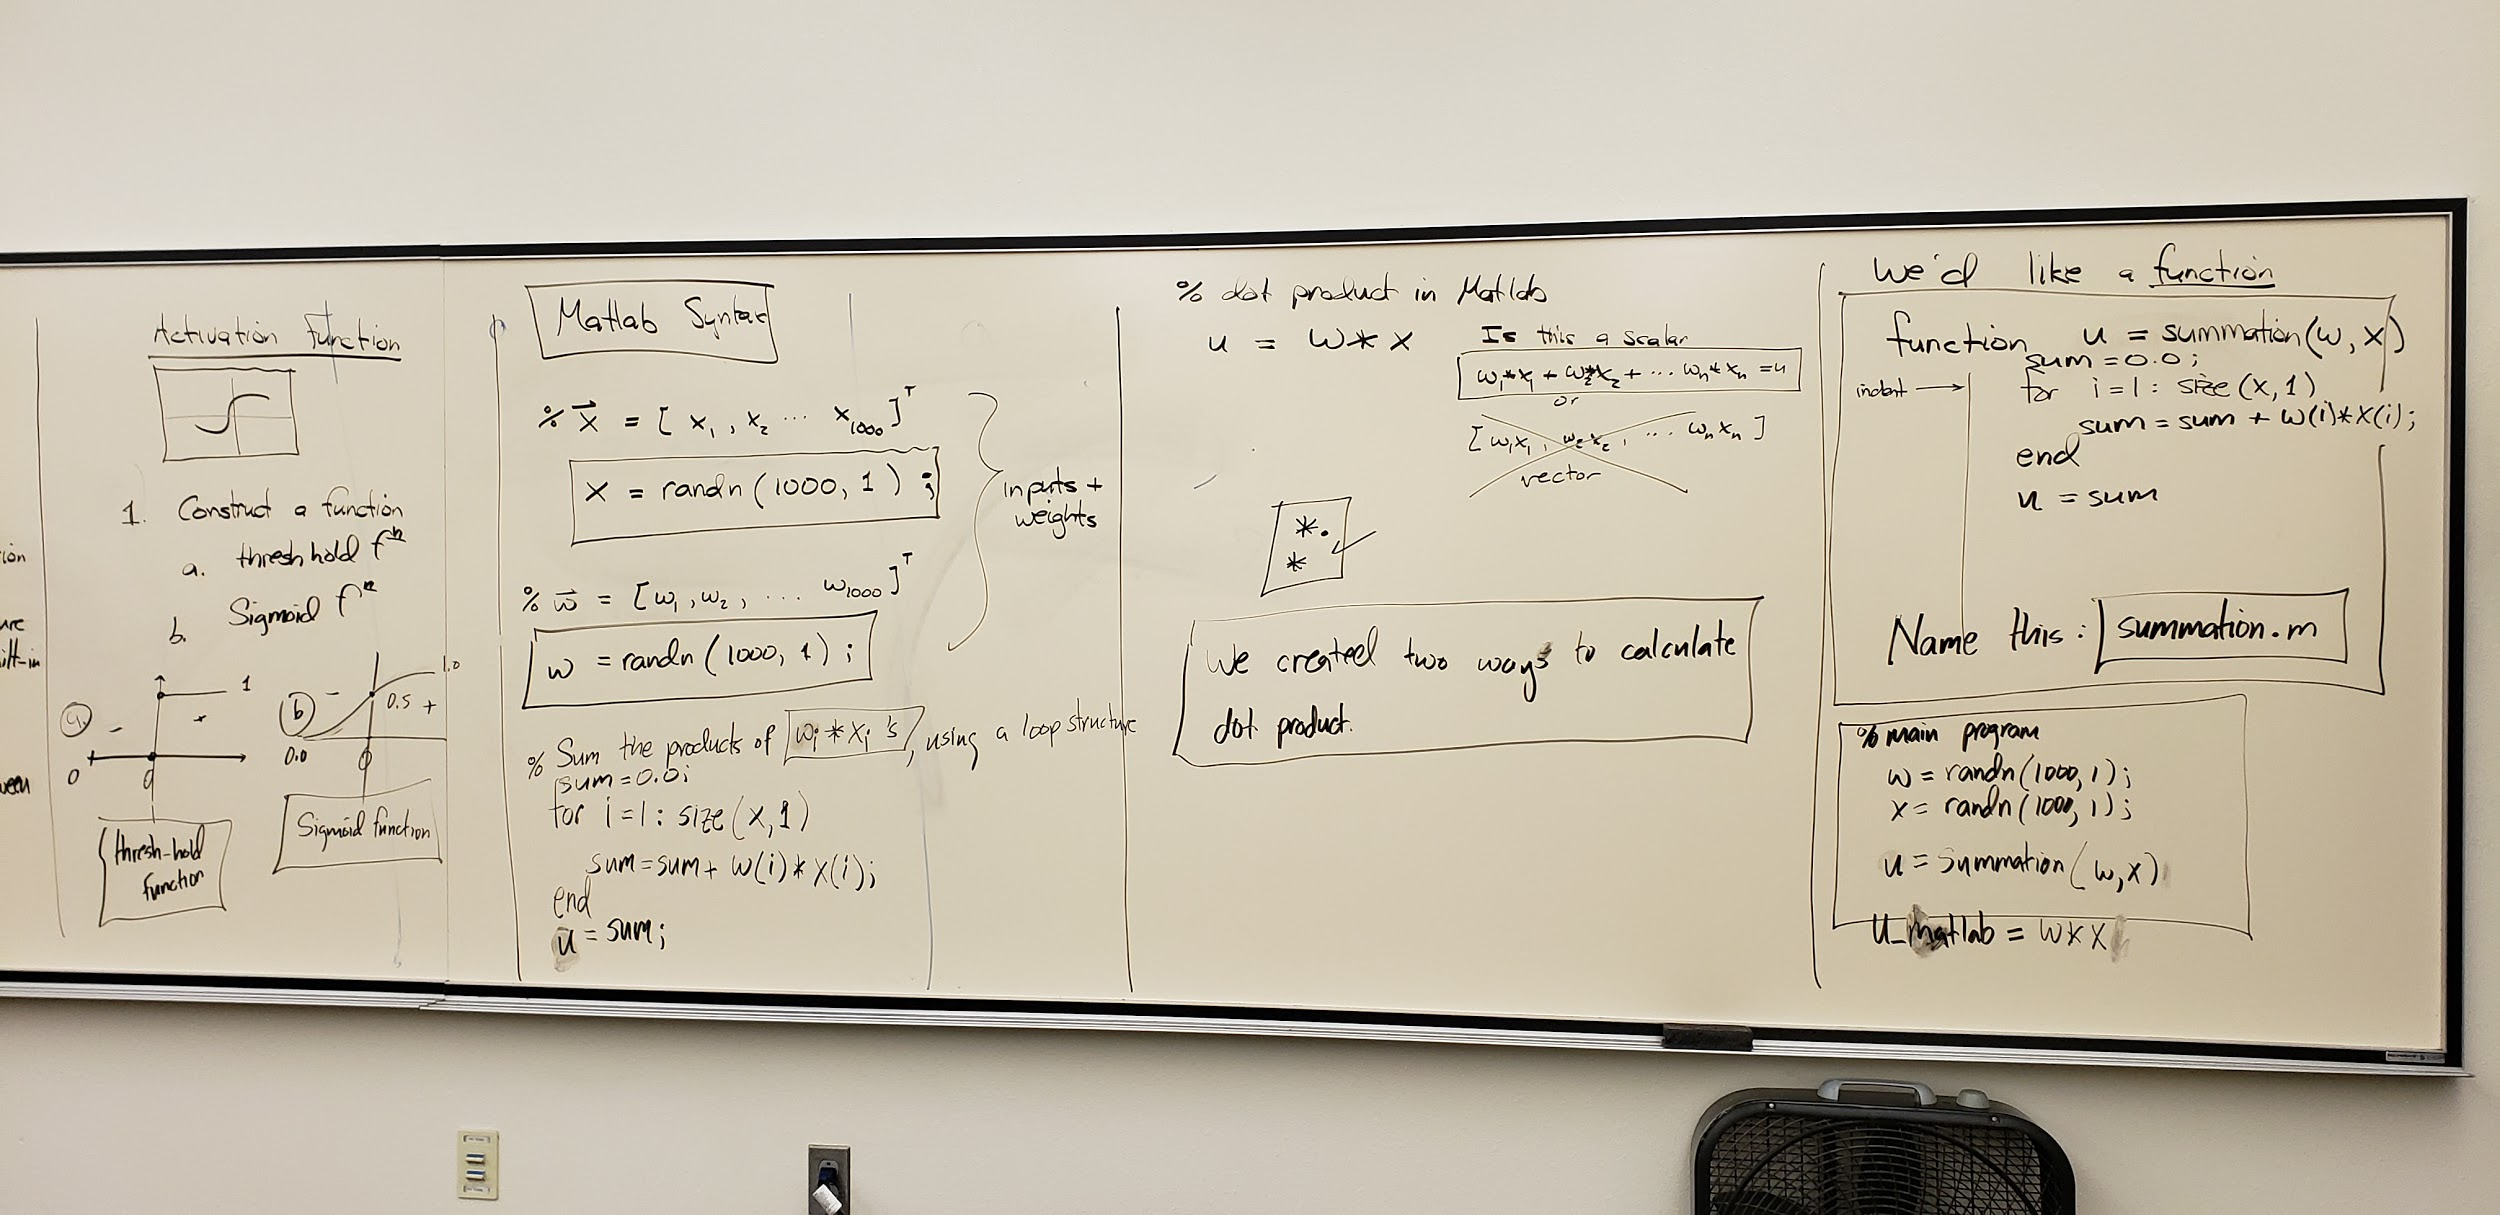 ion
are
ilt-in
ween
Activation Function
1. Construct a function
a. thresh hold fⁿ
b. Sigmoid fⁿ
a. - + 1
0 0
thresh-hold
function
b - 0.5 + 1.0
0.0 0
Sigmoid function
Matlab Syntax
% x⃗ = [ x₁, x₂ ... x₁₀₀₀ ]ᵀ
x = randn(1000, 1) ;
% w⃗ = [w₁, w₂, ... w₁₀₀₀]ᵀ
w = randn(1000, 1) ;
inputs +
weights
% Sum the products of wᵢ * xᵢ 's, using a loop structure
sum = 0.0;
for i = 1 : size(x, 1)
sum = sum + w(i) * x(i);
end
u = sum;
% dot product in Matlab
u = w * x
Is this a scalar
w₁*x₁ + w₂*x₂ + ... wₙ*xₙ = u
or
[w₁x₁, w₂x₂, ... wₙxₙ]
vector
*.
*
We created two ways to calculate
dot product.
We'd like a function
function u = summation(w, x)
sum = 0.0;
indent → for i = 1 : size(x, 1)
sum = sum + w(i)*x(i);
end
u = sum
Name this: summation.m
% main program
w = randn(1000, 1);
x = randn(1000, 1);
u = summation(w, x)
u_matlab = w * x